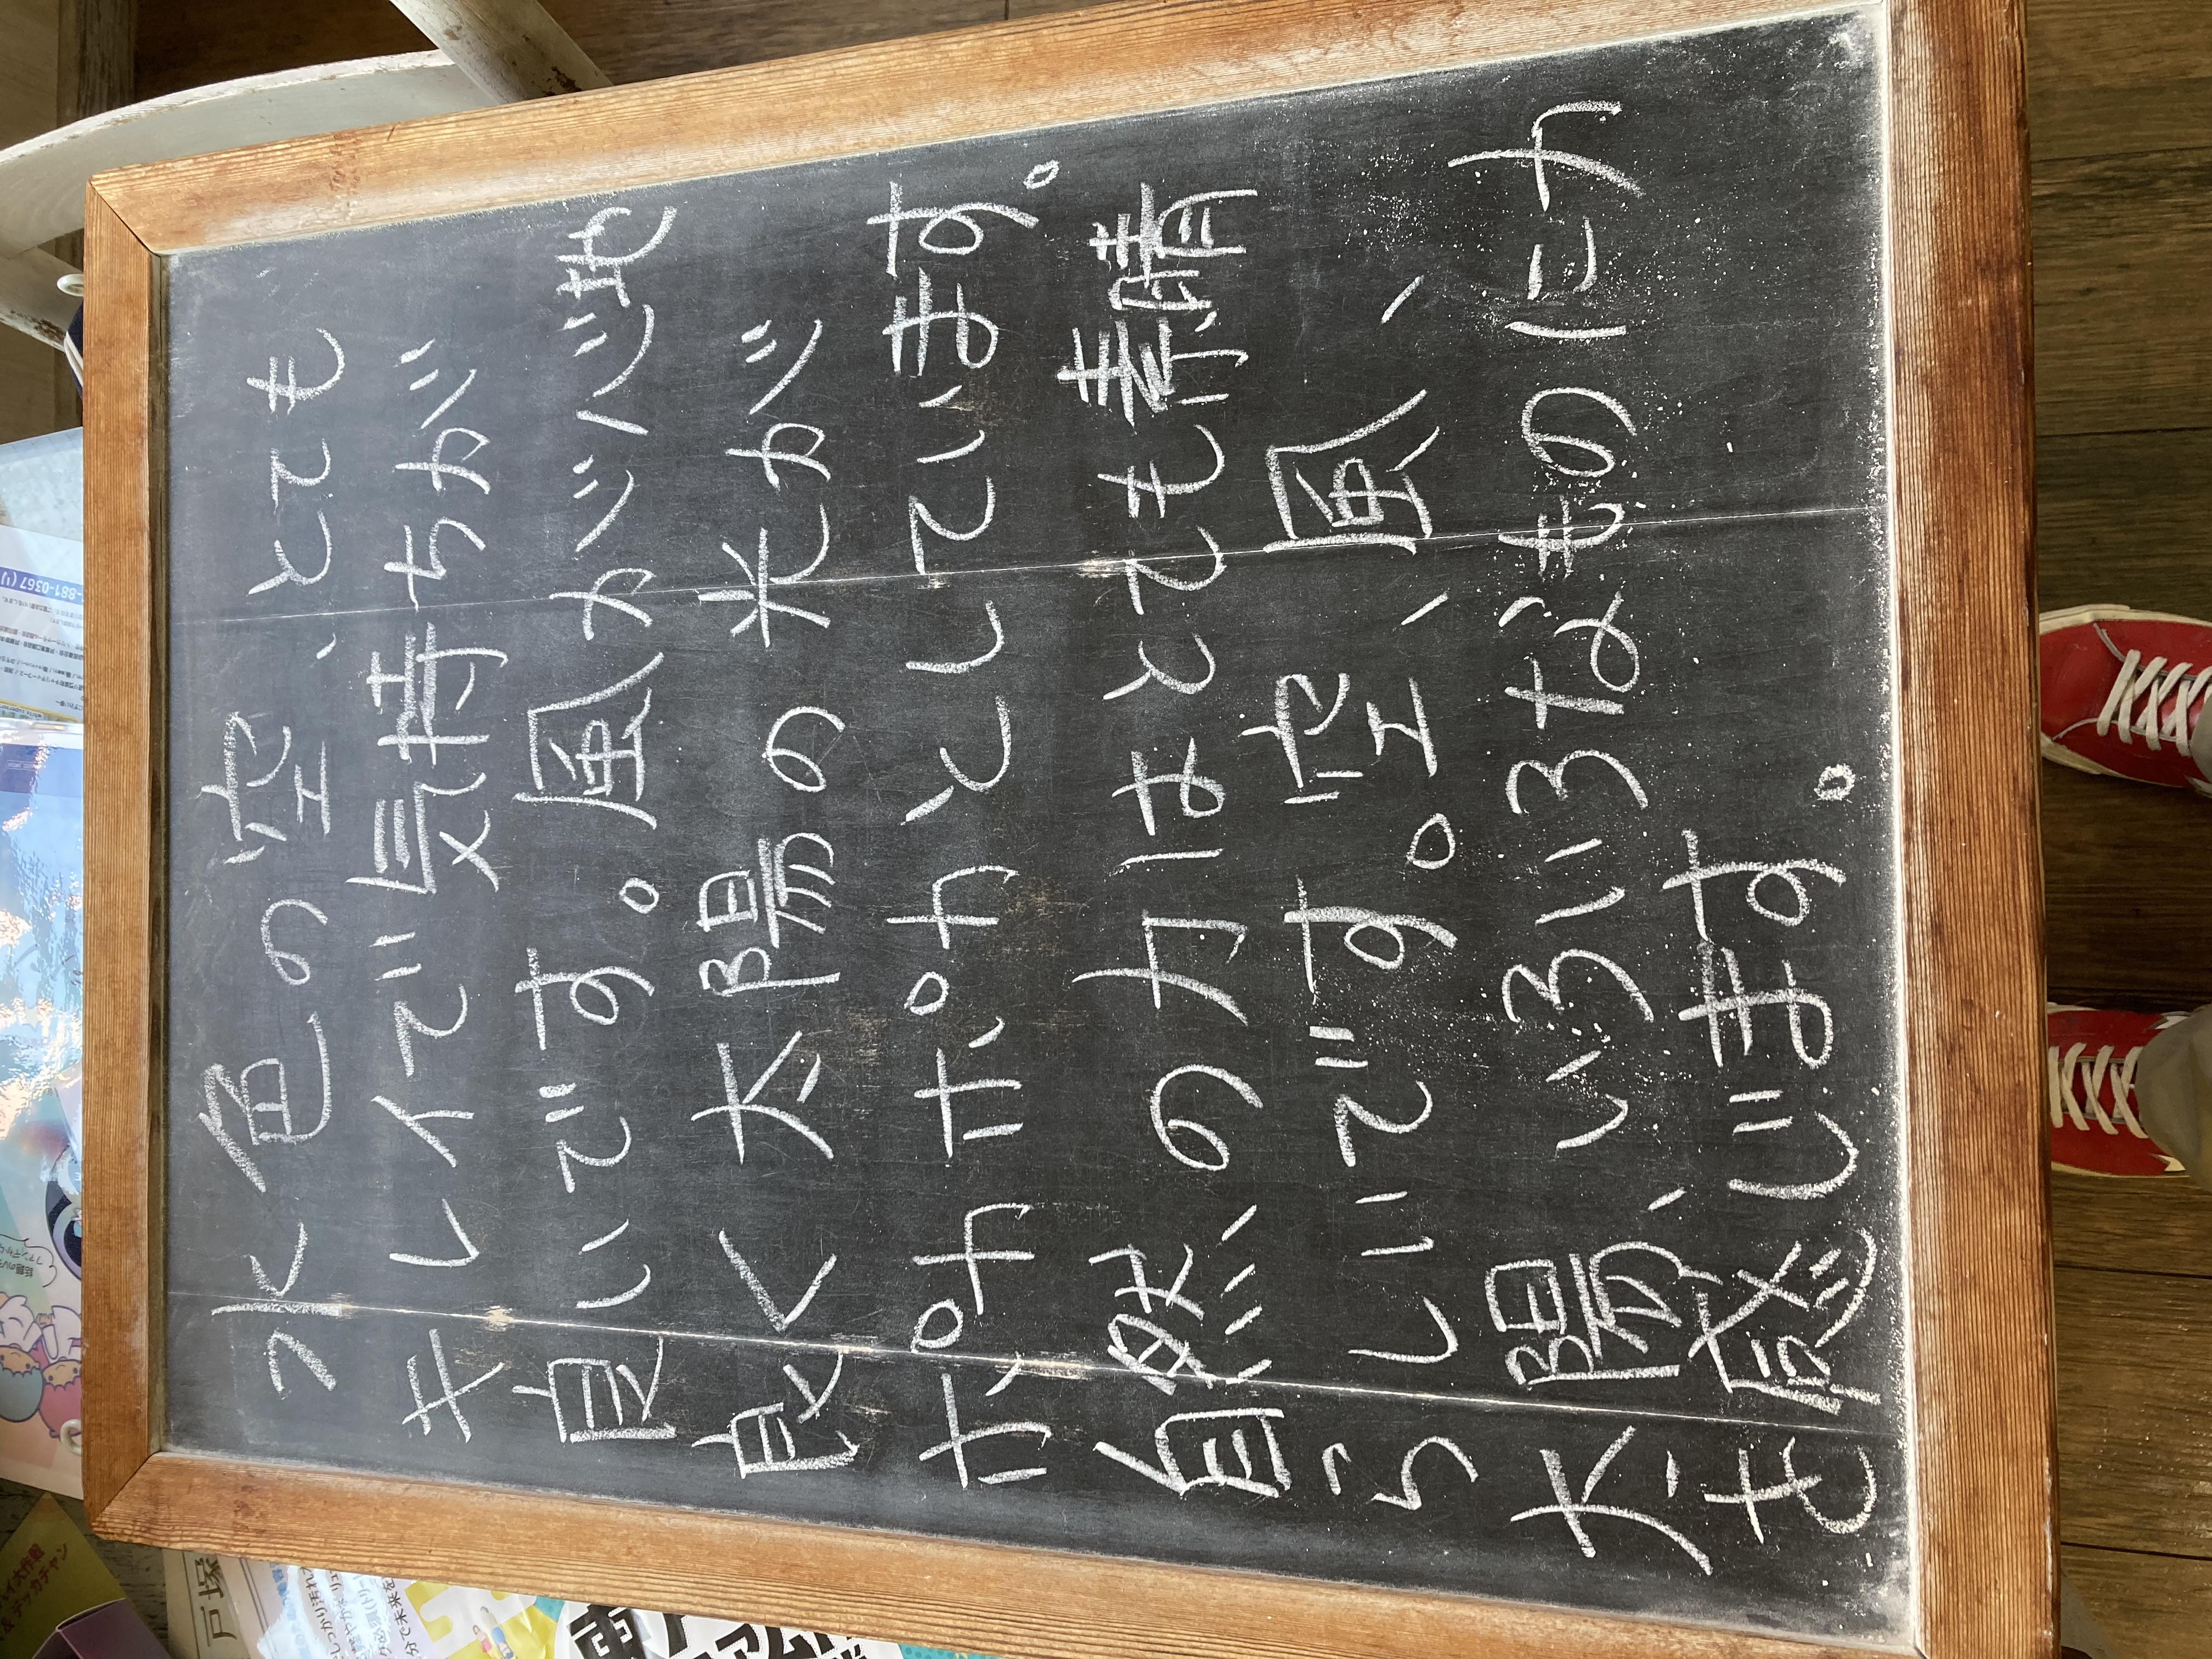 水色の空、とても
キレイで気持ちが
良いです。風が心地
良く太陽の光が
ポカポカとしています。
自然の力はとても素晴
らしいです。空、風、
太陽、いろいろなものに力
も感じます。
881-0367
戸塚